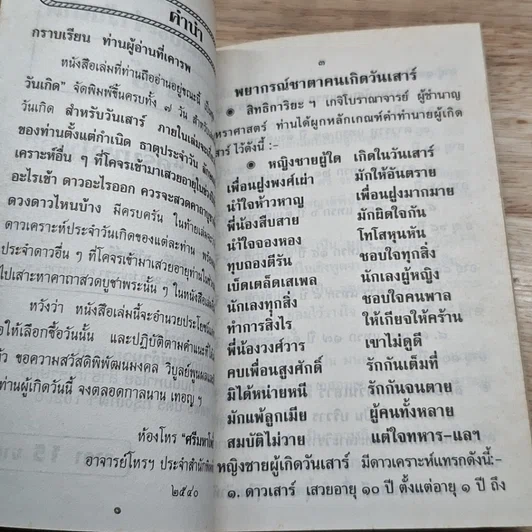 คำนำ
กราบเรียน ท่านผู้อ่านที่เคารพ
หนังสือเล่มที่ท่านถืออ่านอยู่ขณะนี้
วันเกิด" จัดพิมพ์ขึ้นครบทั้ง ๗ วัน สำหรับ
วันเกิด สำหรับวันเสาร์ ภายในเล่มจะ
ของท่านตั้งแต่กำเนิด ธาตุประจำวัน
เคราะห์อื่น ๆ ที่โคจรเข้ามาเสวยอายุ
อะไรเข้า ดาวอะไรออก ควรจะสวดคาถา
ดวงดาวไหนบ้าง มีครบครัน ในท้ายเล่ม
ดาวเคราะห์ประจำวันเกิดของแต่ละท่าน
ประจำดาวอื่น ๆ ที่โคจรเข้ามาเสวยอายุท่าน
ไปเสาะหาคาถาสวดบูชาพระนั้น ๆ ในหนังสือ
หวังว่า หนังสือเล่มนี้จะอำนวยประโยชน์
ให้เลือกซื้อวันนั้น และปฏิบัติตามคำแนะ
ขอความสวัสดิพิพัฒนมงคล วิบูลย์พูนผล
ท่านผู้เกิดวันนี้ จงตลอดกาลนาน เทอญ ฯ
ห้องโหร "ศรีมหา
อาจารย์โหรฯ ประจำสำนัก
๒๕๔๐
๑
๓
พยากรณ์ชาตาคนเกิดวันเสาร์
สิทธิการิยะ ฯ เกจิโบราณาจารย์ ผู้ชำนาญ
หราศาสตร์ ท่านได้ผูกหลักเกณฑ์คำทำนายผู้เกิด
สาร์ ไว้ดังนี้ :-
หญิงชายผู้ใด เกิดในวันเสาร์
เพื่อนฝูงพงศ์เผ่า มักให้อันตราย
น้ำใจห้าวหาญ เพื่อนฝูงมากมาย
พี่น้องสืบสาย มักผิดใจกัน
น้ำใจจองหอง โทโสหุนหัน
ทุบถองตีรัน ชอบใจทุกสิ่ง
เบ็ดเตล็ดเสเพล นักเลงผู้หญิง
นักเลงทุกสิ่ง ชอบใจคนพาล
ทำการสิ่งไร ให้เกียจให้คร้าน
พี่น้องวงศ์วาร เขาไม่ดูดี
คบเพื่อนสูงศักดิ์ รักกันเต็มที่
มิได้หน่ายหนี รักกันจนตาย
มักแพ้ลูกเมีย ผู้คนทั้งหลาย
สมบัติไม่วาย แต่ใจทหาร-แลฯ
หญิงชายผู้เกิดวันเสาร์ มีดาวเคราะห์แทรกดังนี้:-
๑. ดาวเสาร์ เสวยอายุ ๑๐ ปี ตั้งแต่อายุ ๑ ปี ถึง